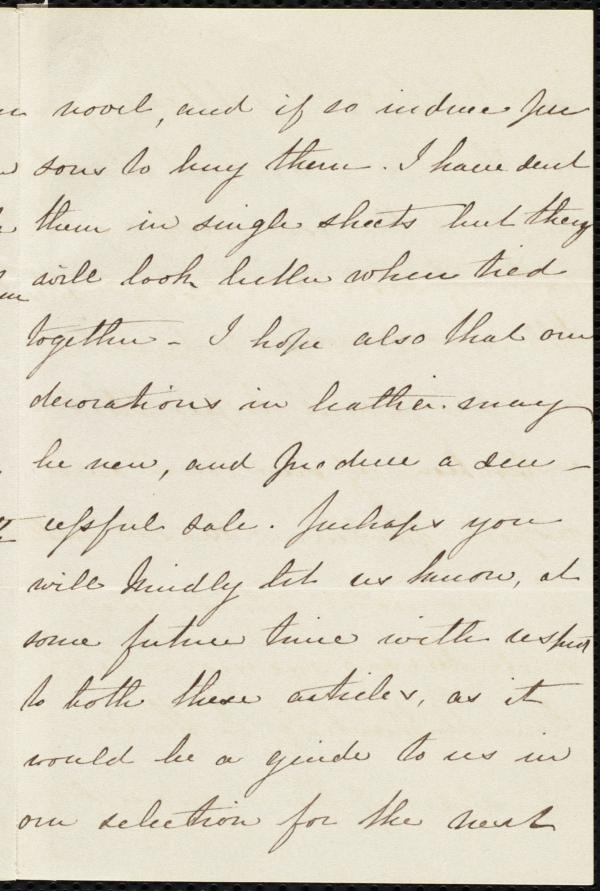 novel, and if so induce per
sons to buy them. I have sent
them in single sheets but they
will look better when tied
together - I hope also that our
decorations in leather may
be new, and produce a suc-
cessful sale. Perhaps you
will kindly let us know, at
some future time with respect
to both these articles, as it
would be a guide to us in
our selection for the next